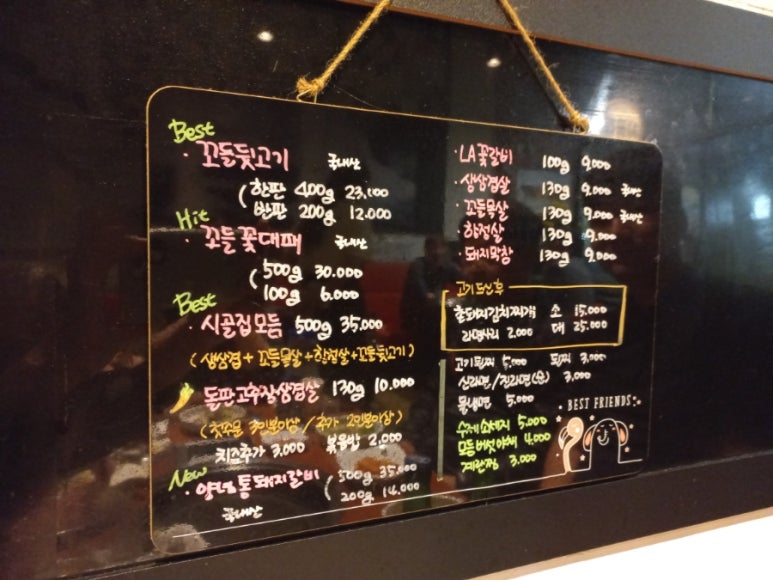 Best
· 꼬들뒷고기 국내산
( 한판 400g 23,000
반판 200g 12.000
Hit
· 꼬들꽃대패 국내산
( 500g 30.000
100g 6.000
Best
· 시골집모듬 500g 35.000
(생삼겹+꼬들목살+항정살+꼬들뒷고기)
돌판고추장삼겹살 130g 10.000
(첫주문 3인분이상 / 추가 2인분이상)
치즈추가 3,000 볶음밥 2,000
New
· 양념통돼지갈비 ( 500g 35.000
200g 14.000
국내산
· LA꽃갈비 100g 9.000
· 생삼겹살 130g 9.000 국내산
· 꼬들목살 130g 9.000 국내산
· 항정살 130g 9.000
· 돼지막창 130g 9.000
고기드신후
돼지김치찌개 소 15.000
라면사리 2.000 대 25.000
고기된찌 5.000 된찌 3,000
신라면/진라면(순) 3,000
물냉면 5.000
수제소세지 5.000
모듬버섯야채 4.000
계란찜 3.000
· BEST FRIENDS ·